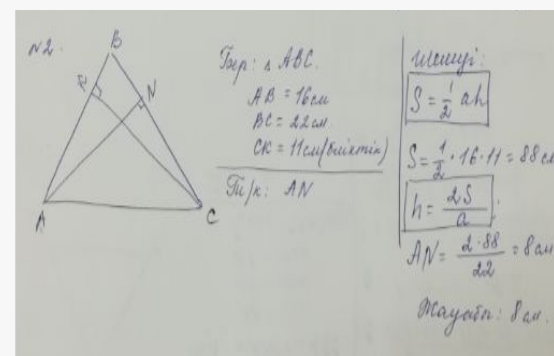 №2.
B
K
N
A
C
Бер: △ ABC.
AB = 16см
BC = 22см.
CK = 11см (биіктік)
Т/к: AN
Шешуі:
S = 1/2 ah
S = 1/2 · 16 · 11 = 88 см
h = 2S/a
AN = 2·88/22 = 8см
Жауабы: 8 см.